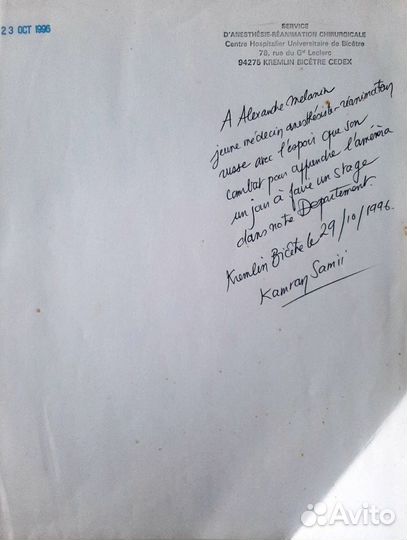 23 OCT 1996
SERVICE
D'ANESTHÉSIE-RÉANIMATION CHIRURGICALE
Centre Hospitalier Universitaire de Bicêtre
78, rue du Gal Leclerc
94275 KREMLIN BICÊTRE CEDEX
A Alexandre Melanin
jeune médecin anesthésiste-réanimation
russe avec l'espoir que son
combat pour apprendre l'amènera
un jour à faire un stage
dans notre Département.
Kremlin Bicêtre le 29/10/1996.
Kamran Samii
Avito